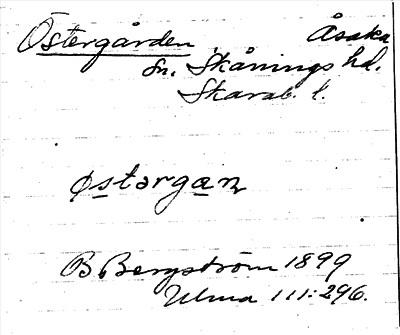 Östergården Åsaka
sn. Skånings hd.
Skarab. l.
østərgan
B. Bergström 1899
Ulma 111:296.